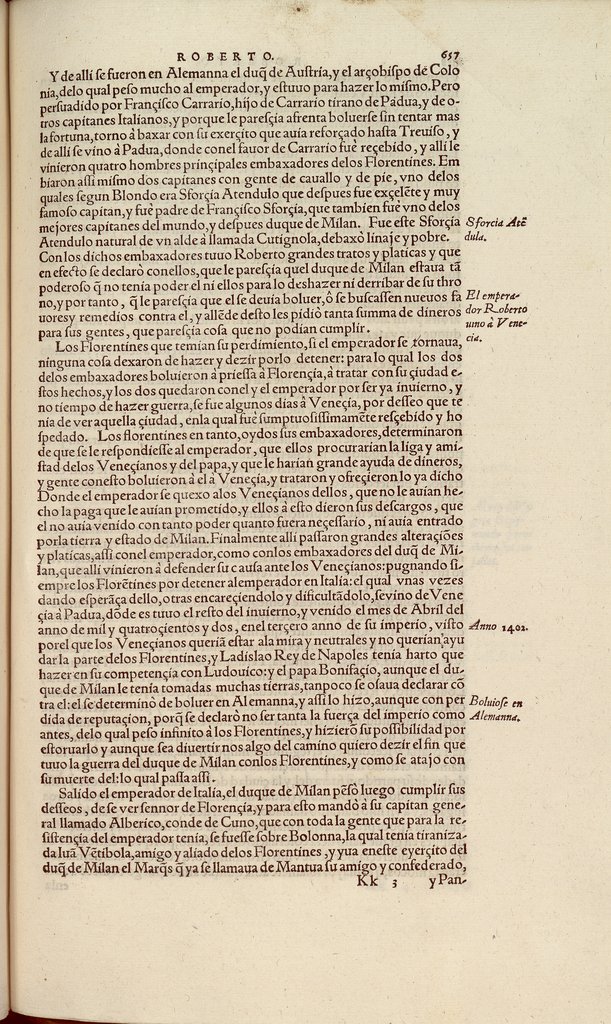 ROBERTO. 657
Y de allí ſe fueron en Alemanna el duq̃ de Auſtría, y el arçobíſpo de Colo
nía, delo qual peſo mucho al emperador, y eſtuuo para hazer lo míſmo. Pero
perſuadído por Françíſco Carrarío, híjo de Carrarío tírano de Padua, y de o-
tros capítanes Italíanos, y porque le pareſçía afrenta boluerſe ſin tentar mas
la fortuna, tornó à baxar con ſu exerçíto que auía reforçado haſta Treuíſo, y
de allí ſe víno à Padua, donde conel fauor de Carrarío fue reçebído, y allí le
víníeron quatro hombres prínçípales embaxadores delos Florentínes. Em
bíaron aſſi míſmo dos capítanes con gente de cauallo y de píe, vno delos
quales ſegun Blondo era Sforçía Atendulo que deſpues fue exçelẽte y muy
famoſo capítan, y fuè padre de Françíſco Sforçía, que tambíen fuè vno delos
mejores capítanes del mundo, y deſpues duque de Mílan. Fue eſte Sforçía
Sforcia Atẽ
Atendulo natural de vn alde à llamada Cutígnola, debaxò línaje y pobre.
dula.
Con los díchos embaxadores tuuo Roberto grandes tratos y platícas y que
en efecto ſe declaró conellos, que le pareſçía quel duque de Mílan eſtaua tã
poderoſo q̃ no tenía poder el ní ellos para lo deſhazer ní derríbar de ſu thro
no, y por tanto, q̃ le pareſçía que el ſe deuía boluer, ô ſe buſcaſſen nueuos fa
El empera-
uores y remedíos contra el, y allẽde deſto les pídío tanta ſumma de díneros
dor Roberto
para ſus gentes, que pareſçía coſa que no podían cumplír.
uino à Vene-
cia.
Los Florentínes que temían ſu perdímíento, ſi el emperador ſe tornaua,
nínguna coſa dexaron de hazer y dezír porlo detener: para lo qual los dos
delos embaxadores boluíeron à príeſſa à Florençía, à tratar con ſu çíudad e-
ſtos hechos, y los dos quedaron conel y el emperador por ſer ya ínuíerno, y
no tíempo de hazer guerra, ſe fue algunos días à Veneçía, por deſſeo que te
nía de ver aquella çíudad, enla qual fuè ſumptuoſiſſimamẽte reſçebído y ho
ſpedado. Los florentínes en tanto, oydos ſus embaxadores, determínaron
de que ſe le reſpondíeſſe al emperador, que ellos procurarían la líga y amí-
ſtad delos Veneçíanos y del papa, y que le harían grande ayuda de díneros,
y gente coneſto boluíeron à el à Veneçía, y trataron y ofreçíeron lo ya dícho
Donde el emperador ſe quexo alos Veneçíanos dellos, que no le auían he-
cho la paga que le auían prometído, y ellos à eſto díeron ſus deſcargos, que
el no auía venído con tanto poder quanto fuera neçeſſarío, ní auía entrado
porla tíerra y eſtado de Mílan. Fínalmente allí paſſaron grandes alteraçíões
y platícas, aſſi conel emperador, como conlos embaxadores del duq̃ de Mí-
lan, que allí víníeron à defender ſu cauſa ante los Veneçíanos: pugnando ſi-
empre los Florẽtínes por detener alemperador en Italía: el qual vnas vezes
dando eſperãça dello, otras encareçíendolo y díficultãdolo, ſe víno de Vene
çía à Padua, dõde es tuuo el reſto del ínuíerno, y venído el mes de Abríl del
anno de míl y quatroçíentos y dos, enel terçero anno de ſu imperío, víſto
Anno 1402.
porel que los Veneçíanos queríã eſtar ala míra y neutrales y no querían ayu
dar la parte delos Florentínes, y Ladíſlao Rey de Napoles tenía harto que
hazer en ſu competençía con Ludouíco: y el papa Bonífaçío, aunque el du-
que de Mílan le tenía tomadas muchas tíerras, tanpoco ſe oſaua declarar cõ
tra el: el ſe determínò de boluer en Alemanna, y aſſi lo hízo, aunque con per
Boluioſe en
dída de reputaçíon, porq̃ ſe declaró no ſer tanta la fuerça del ímperío como
Alemanna.
antes, delo qual peſo ínfíníto à los Florentínes, y hízíerõ ſu poſſíbílídad por
eſtoruarlo y aunque ſea díuertír nos algo del camíno quíero dezír el fín que
tuuo la guerra del duque de Mílan conlos Florentínes, y como ſe atajo con
ſu muerte del: lo qual paſſa aſſi.
Salído el emperador de Italía, el duque de Mílan pẽſó luego cumplír ſus
deſſeos, de ſe ver ſennor de Florençía, y para eſto mandò à ſu capítan gene-
ral llamado Alberíco, conde de Cuno, que con toda la gente que para la re-
ſiſtençía del emperador tenía, ſe fueſſe ſobre Bolonna, la qual tenía tíraníza-
da Iuã Vẽtíbola, amígo y alíado delos Florentínes, y yua eneſte eyerçíto del
duq̃ de Mílan el Marq̃s q̃ ya ſe llamaua de Mantua ſu amígo y confederado,
Kk 3 y Pan-